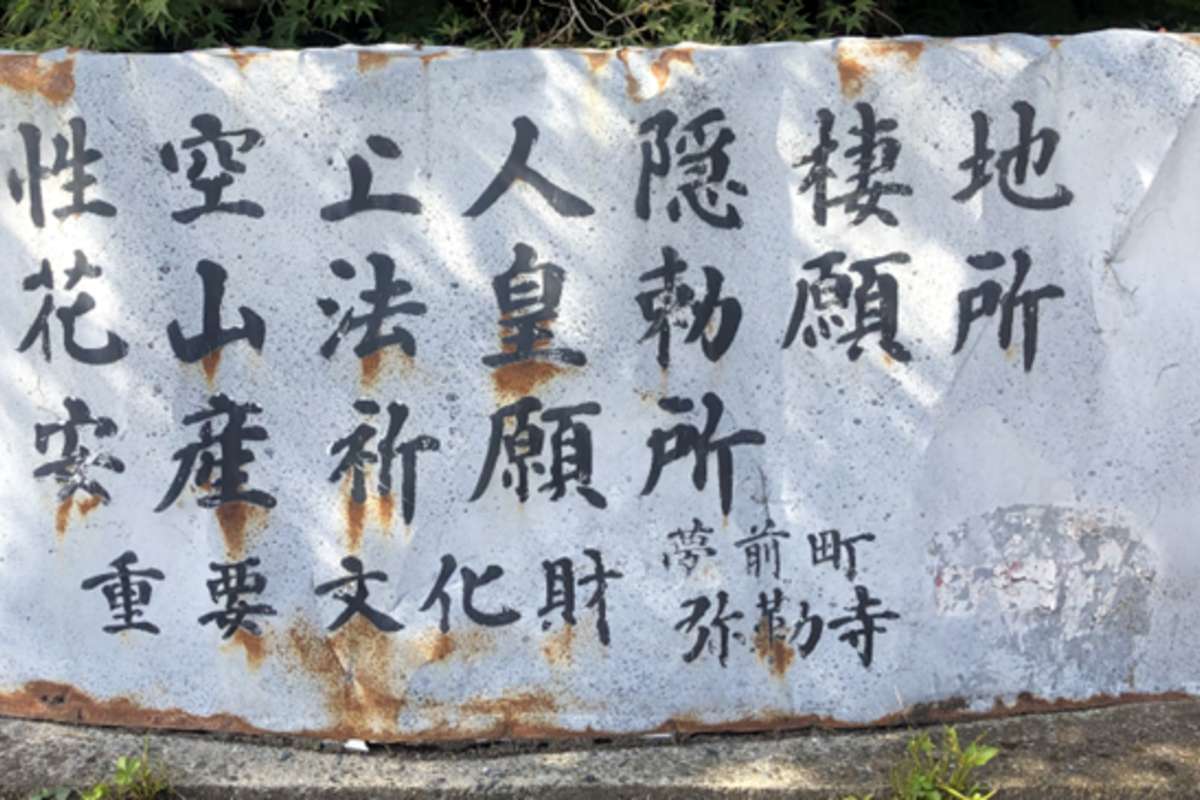 性空上人隠棲地
花山法皇勅願所
安産祈願所
重要文化財
夢前町
弥勒寺